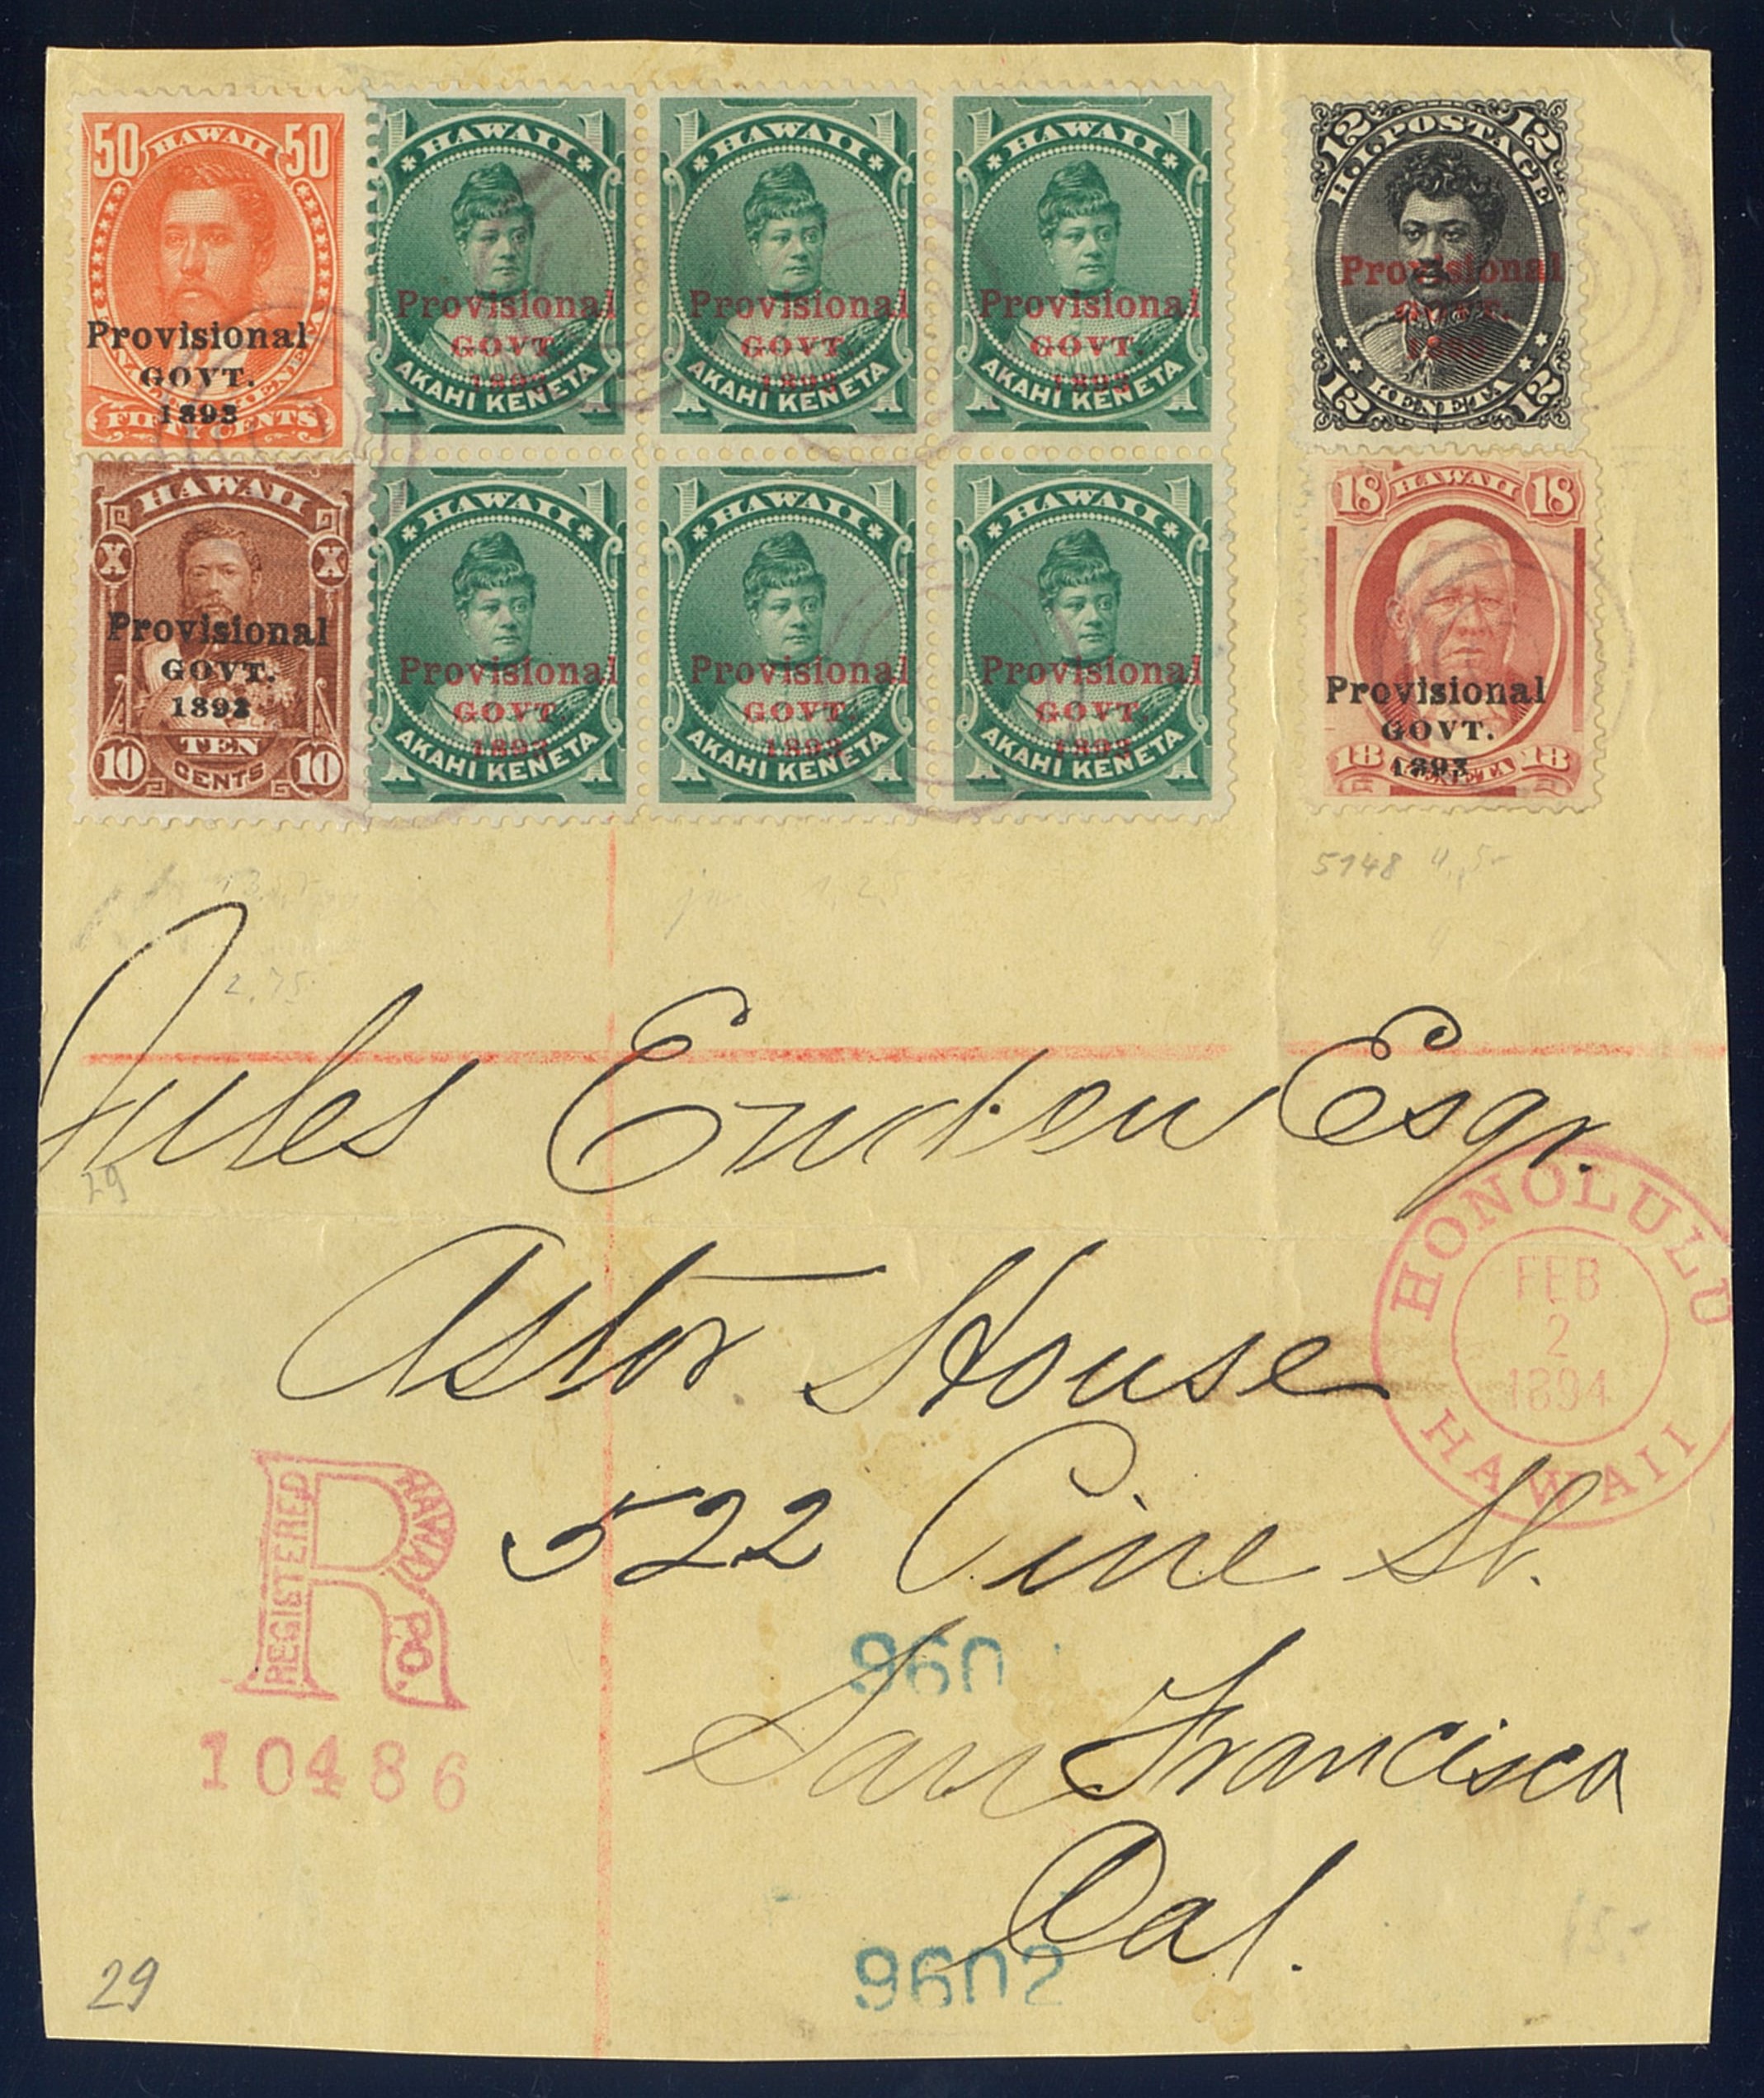 50 HAWAII 50
Provisional
GOVT.
1893
FIFTY CENTS
1 HAWAII 1
Provisional
GOVT.
1893
AKAHI KENETA
1 1
1 HAWAII 1
Provisional
GOVT.
1893
AKAHI KENETA
1 1
1 HAWAII 1
Provisional
GOVT.
1893
AKAHI KENETA
1 1
12 12
H.I. POSTAGE
Provisional
GOVT.
1893
KENETA
12 12
HAWAII
X X
Provisional
GOVT.
1893
TEN
10 CENTS 10
1 HAWAII 1
Provisional
GOVT.
1893
AKAHI KENETA
1 1
1 HAWAII 1
Provisional
GOVT.
1893
AKAHI KENETA
1 1
1 HAWAII 1
Provisional
GOVT.
1893
AKAHI KENETA
1 1
18 HAWAII 18
Provisional
GOVT.
1893
18 KENETA 18
5148
2.75
Jules Esqr.
29
Astor House
HONOLULU
FEB
2
1894
HAWAII
522 Pine St.
REGISTERED HAWAII P.O.
10486
960
San Francisco
Cal.
9602
29